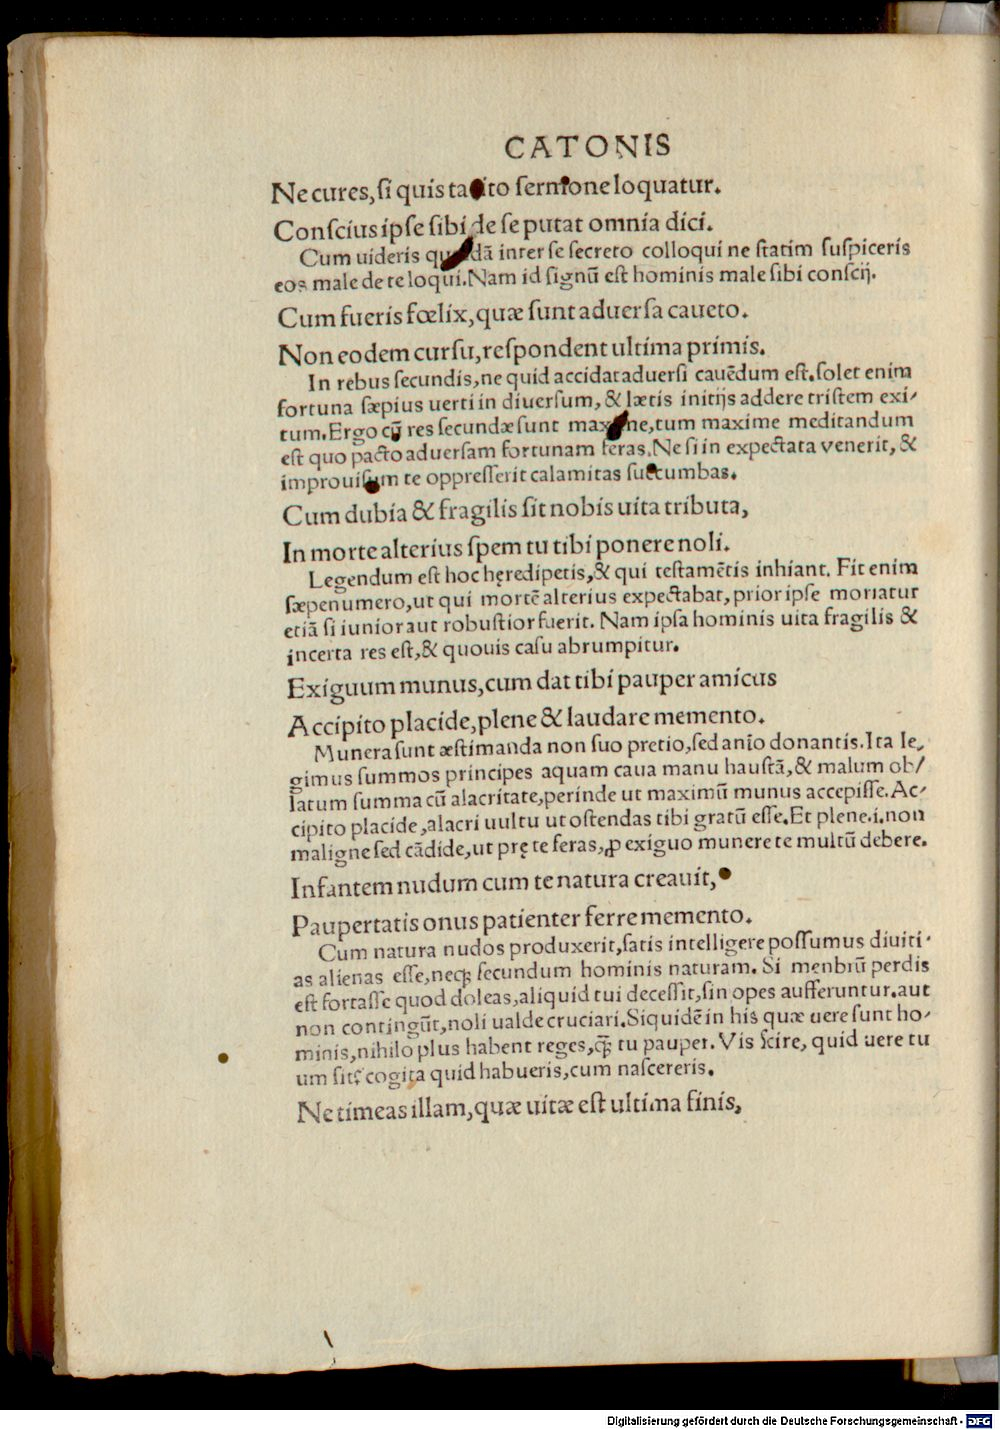 CATONIS
Ne cures, si quis tacito sermone loquatur.
Conscius ipse sibi de se putat omnia dici.
Cum uideris quosdā inter se secreto colloqui ne statim suspiceris
eos male de te loqui. Nam id signū est hominis male sibi conscij.
Cum fueris fœlix, quæ sunt aduersa caueto.
Non eodem cursu, respondent ultima primis.
In rebus secundis, ne quid accidat aduersi cauēdum est. solet enim
fortuna sæpius uerti in diuersum, & lætis initijs addere tristem exi/
tum. Ergo cū res secundæ sunt maxime, tum maxime meditandum
est quo pacto aduersam fortunam feras. Ne si in expectata venerit, &
improuisum te oppresserit calamitas succumbas.
Cum dubia & fragilis sit nobis uita tributa,
In morte alterius spem tu tibi ponere noli.
Legendum est hoc hęredipetis, & qui testamētis inhiant. Fit enim
sæpenumero, ut qui mortē alterius expectabat, prior ipse moriatur
etiā si iunior aut robustior fuerit. Nam ipsa hominis uita fragilis &
incerta res est, & quouis casu abrumpitur.
Exiguum munus, cum dat tibi pauper amicus
Accipito placide, plene & laudare memento.
Munera sunt æstimanda non suo pretio, sed anīo donantis. Ita le/
gimus summos principes aquam caua manu haustā, & malum ob/
latum summa cū alacritate, perinde ut maximū munus accepisse. Ac/
cipito placide, alacri uultu ut ostendas tibi gratū esse. Et plene .i. non
maligne sed cādide, ut prę te feras, ꝓ exiguo munere te multū debere.
Infantem nudum cum te natura creauit,
Paupertatis onus patienter ferre memento.
Cum natura nudos produxerit, satis intelligere possumus diuiti/
as alienas esse, neqꝫ secundum hominis naturam. Si menbrū perdis
est fortasse quod doleas, aliquid tui decessit, sin opes aufferuntur. aut
non contingūt, noli ualde cruciari. Siquidē in his quæ uere sunt ho/
minis, nihilo plus habent reges, q̄ꝫ tu pauper. Vis scire, quid uere tu
um sit? cogita quid habueris, cum nascereris.
Ne timeas illam, quæ uitæ est ultima finis,
Digitalisierung gefördert durch die Deutsche Forschungsgemeinschaft - DFG